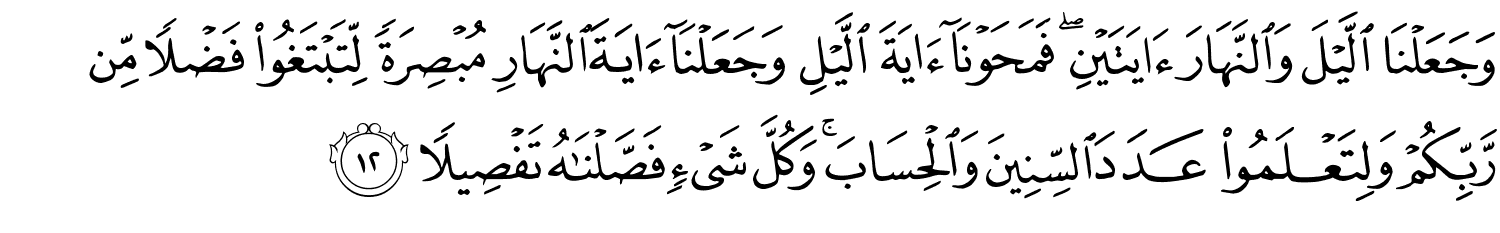 وَجَعَلْنَا ٱلَّيْلَ وَٱلنَّهَارَ ءَايَتَيْنِ ۖ فَمَحَوْنَآ ءَايَةَ ٱلَّيْلِ وَجَعَلْنَآ ءَايَةَ ٱلنَّهَارِ مُبْصِرَةً لِّتَبْتَغُوا۟ فَضْلًا مِّن
رَّبِّكُمْ وَلِتَعْلَمُوا۟ عَدَدَ ٱلسِّنِينَ وَٱلْحِسَابَ ۚ وَكُلَّ شَىْءٍ فَصَّلْنَٰهُ تَفْصِيلًا ١٢